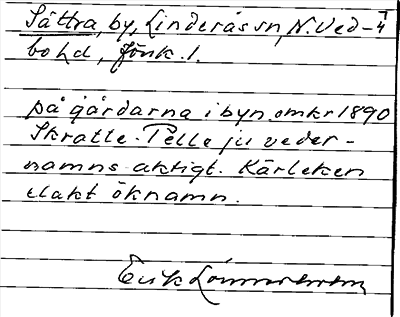 Sättra, by, Linderås sn, N. Ved-
bo hd, Jönk. l.
på gårdarna i byn omkr 1890
Skratte-Pelle ju veder-
namns-aktigt. Kärleken
elakt öknamn.
Erik